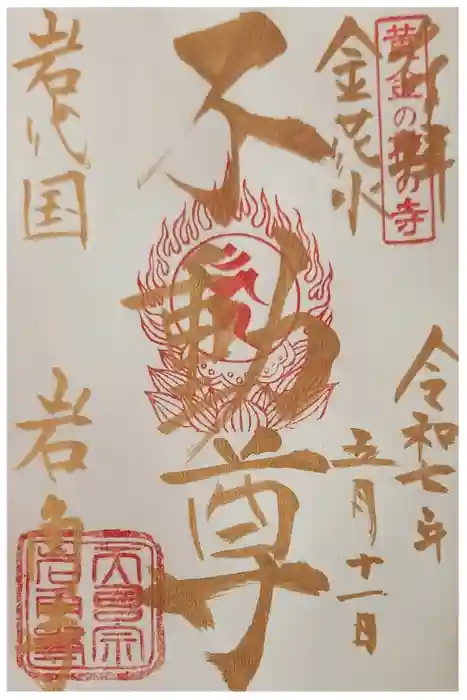 奉拝
黄金の
の寺
金花水
令和七年
五月十一日
不動尊
岩代国
岩角寺
天臺宗
岩角寺